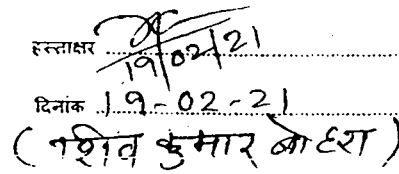 हस्ताक्षर 19/02/21
दिनांक 19-02-21
( शिव कुमार बोहरा )